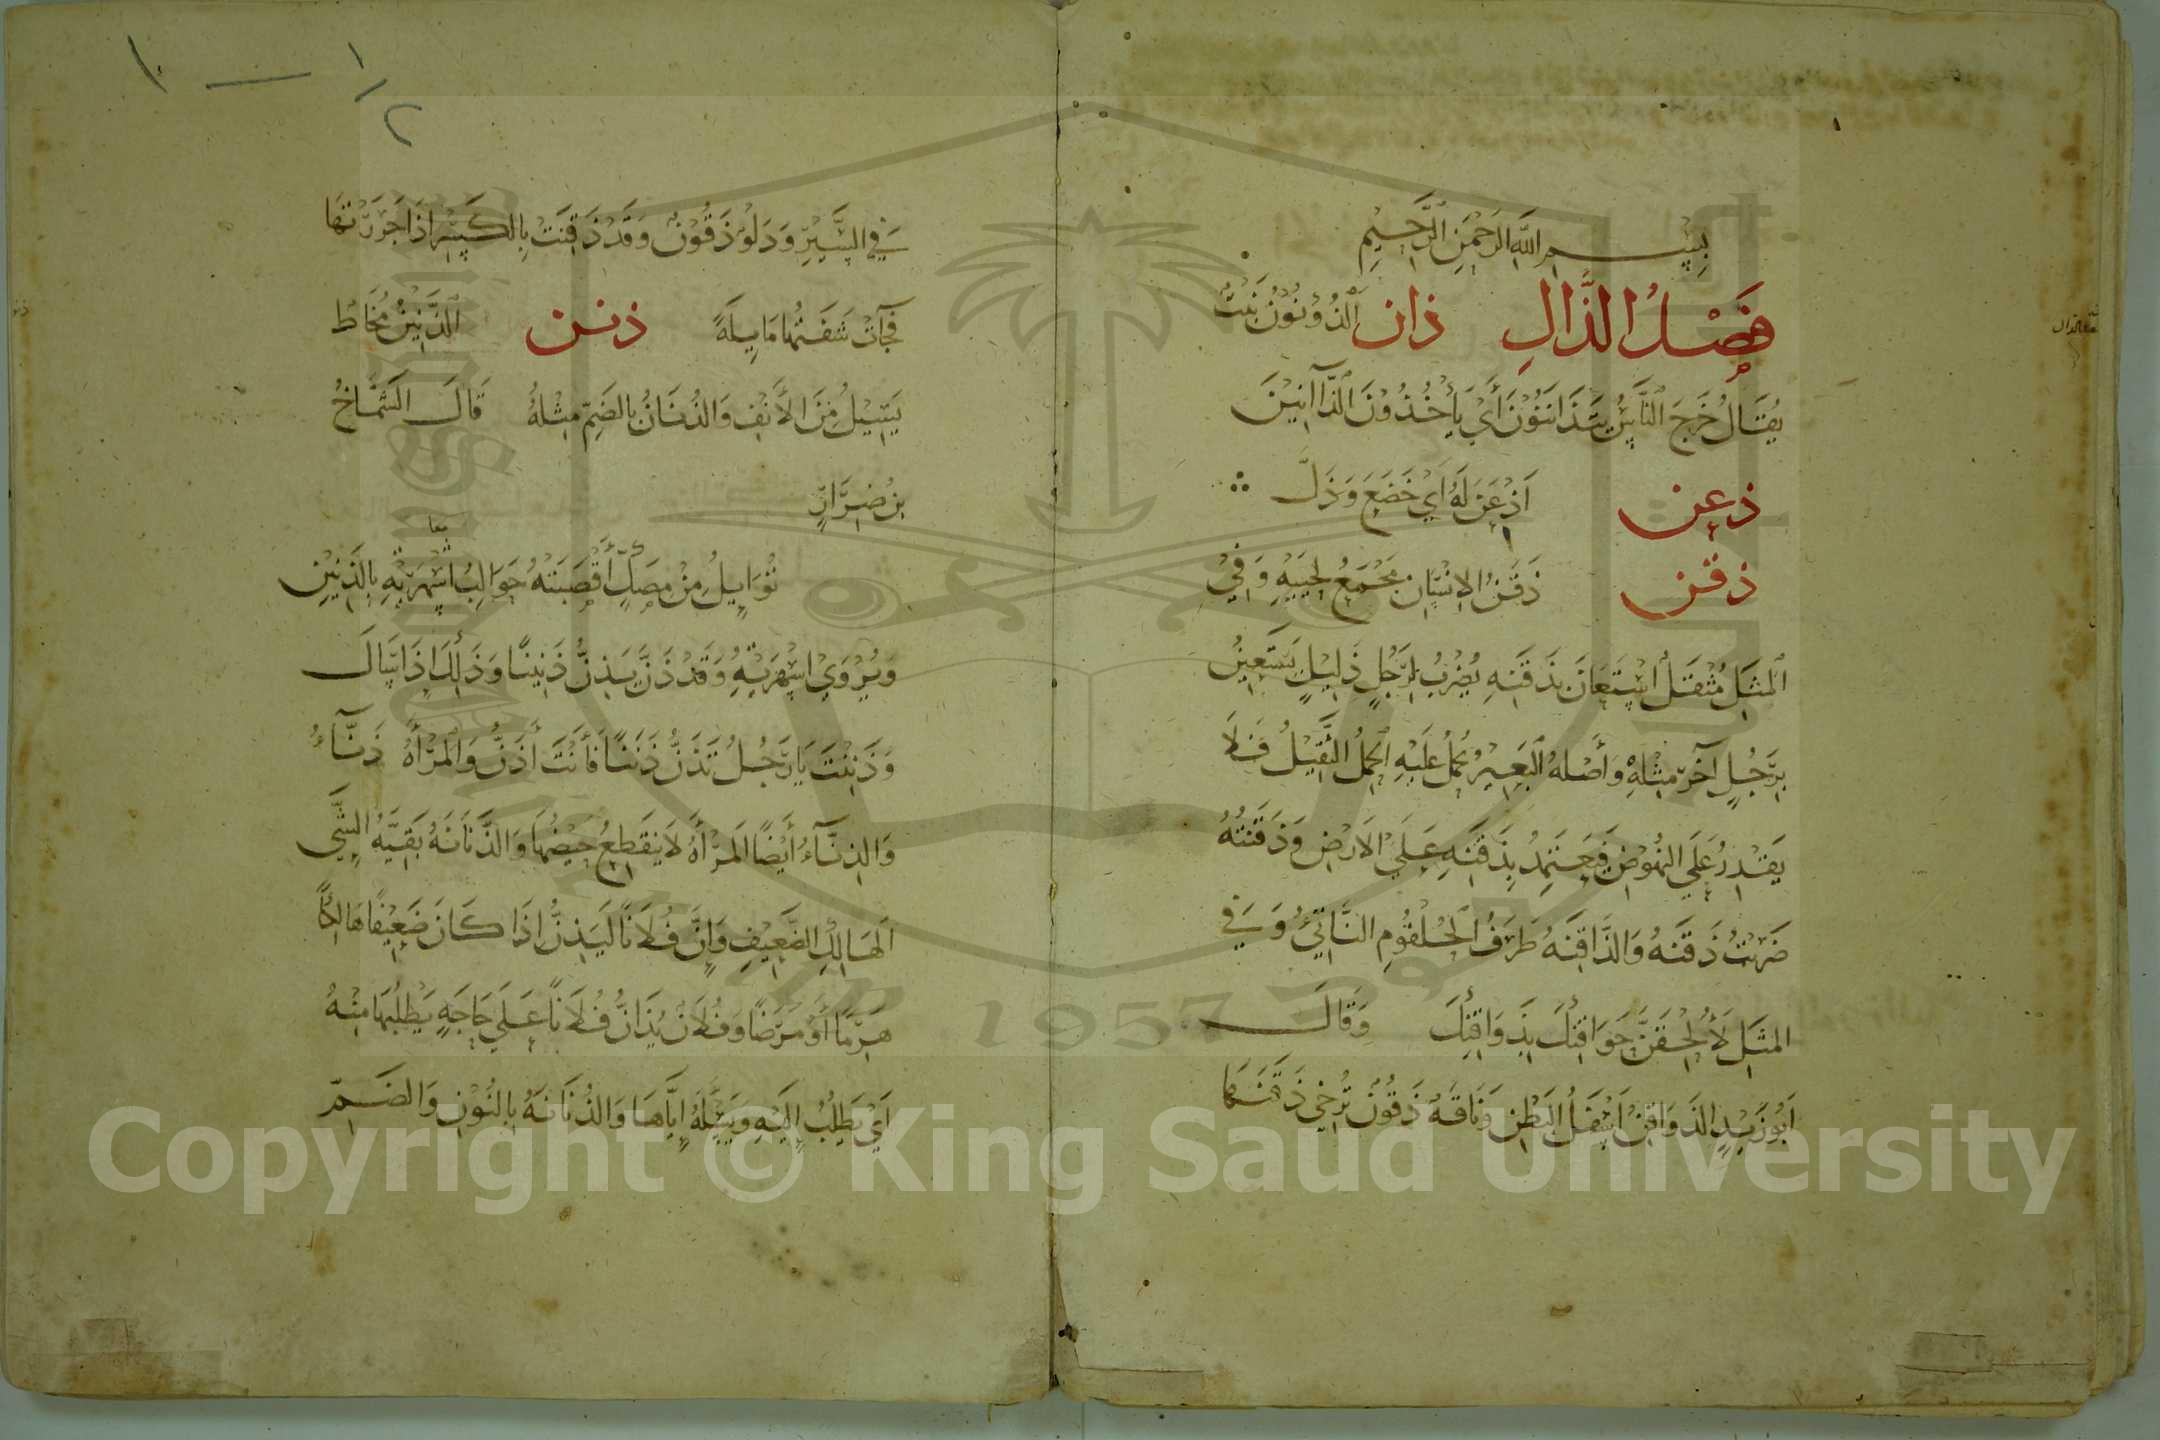 بِسْمِ اللَّهِ الرَّحْمَنِ الرَّحِيمِ
فَصْلُ الذَّالِ ذان الذُؤْنُونُ نَبْتٌ
يُقَالُ خَرَجَ النَّاسُ يَتَذَأْنَنُوْنَ أَيْ يَأْخُذُوْنَ الذَّآنِيْنَ
ذعن اَذْعَنَ لَهُ اَيْ خَضَعَ وَذَلَّ
ذقن ذَقَنُ الاِنْسَانِ مَجْمَعُ لِحْيَيْهِ وَفِيْ
الْمَثَلِ مُثْقَلٌ اسْتَعَانَ بِذَقَنِهِ يُضْرَبُ لِرَجُلٍ ذَلِيْلٍ يَسْتَعِيْنُ
بِرَجُلٍ آخَرَ مِثْلِهِ وَأَصْلُهُ الْبَعِيْرُ يُحْمَلُ عَلَيْهِ الْحِمْلُ الثَّقِيْلُ فَلَا
يَقْدِرُ عَلَى النُّهُوْضِ فَيَعْتَمِدُ بِذَقَنِهِ عَلَى الاَرْضِ وَذَقَنْتُهُ
ضَرَبْتُ ذَقَنَهُ وَالذَّاقِنَةُ طَرَفُ الْحُلْقُوْمِ النَّاتِئُ وَفِي
الْمَثَلِ لَأُلْحِقَنَّ حَوَاقِنَكَ بِذَوَاقِنِكَ وَقَالَ
اَبُوْ زَيْدٍ الذَوَاقِنُ اَسْفَلُ الْبَطْنِ وَنَاقَةٌ ذَقُوْنٌ تُرْخِيْ ذَقَنَهَا
فِي السَّيْرِ وَدَلْوٌ ذَقُوْنٌ وَقَدْ ذَقِنَتْ بِالْكَسْرِ اِذَا خَرَزْتَهَا
فَجَآتْ شَفَتُهَا مَايِلَةً ذنن الذَّنِيْنُ مُخَاطٌ
يَسِيْلُ مِنَ الاَنْفِ وَالذُنَانُ بِالضَمِّ مِثْلُهُ قَالَ الشَّمَّاخُ
بْنُ ضِرَارٍ
معا
تُوَايِلُ مِنْ مِصَكٍّ أَنْصَبَتْهُ حَوَالِبُ اَسْهَرَيْهِ بِالذَنِيْنِ
وَيُرْوَى اَسْهَرَتْهُ وَقَدْ ذَنَّ يَذِنُّ ذَنِيْنًا وَذَلِكَ اِذَا سَالَ
وَذَنِنْتَ يَا رَجُلُ تَذَنُّ ذَنَنًا فَأَنْتَ أَذَنُّ وَالْمَرْأَةُ ذَنَّآءُ
وَالذَّنَّآءُ أَيْضًا الْمَرْأَةُ لَا يَنْقَطِعُ حَيْضُهَا وَالذُّنَانَةُ بَقِيَّةُ الشَّيْ
الْهَالِكِ الضَّعِيْفِ وَإِنَّ فُلَانًا لَيَذِنُّ اِذَا كَانَ ضَعِيْفًا هَالِكًا
هَرَمًا أَوْ مَرَضًا وَفُلَانٌ يُذَانُّ فُلَانًا عَلَى حَاجَةٍ يَطْلُبُهَا مِنْهُ
اَيْ يَطْلُبُ اِلَيْهِ وَيَسْئَلُهُ اِيَّاهَا وَالذُنَانَةُ بِالنُّوْنِ وَالضَمِّ
1957
Copyright © King Saud University